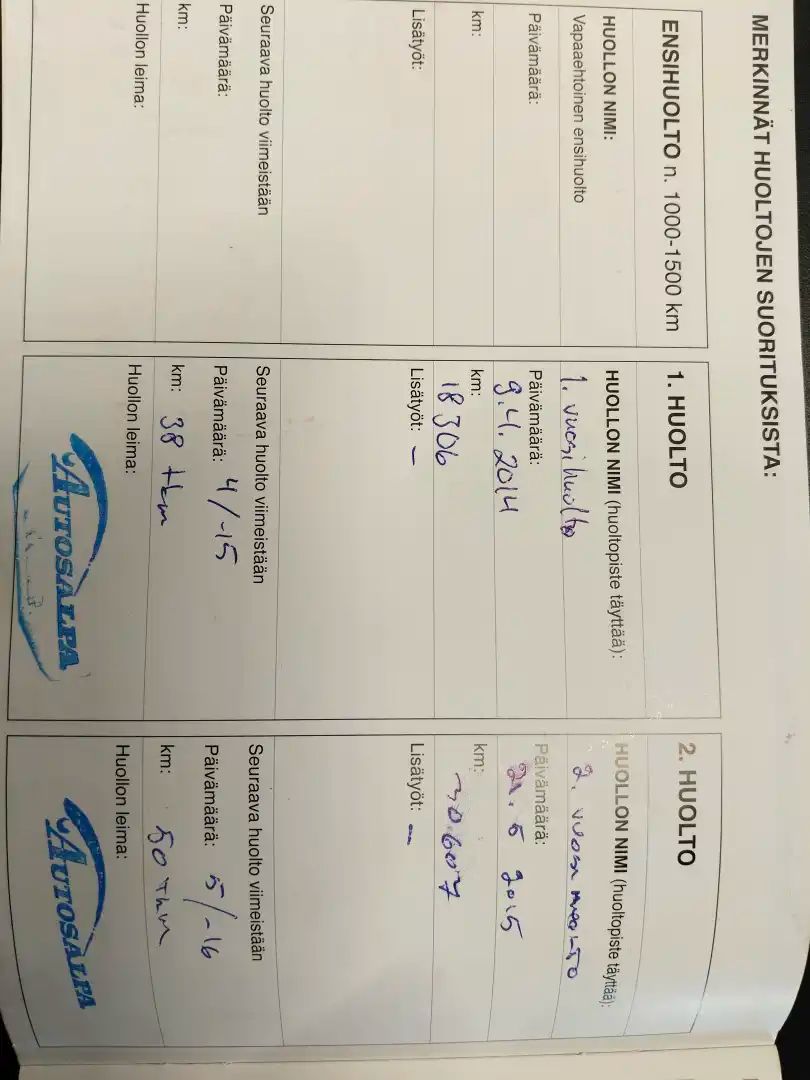 MERKINNÄT HUOLTOJEN SUORITUKSISTA:
ENSIHUOLTO n. 1000-1500 km
HUOLLON NIMI:
Vapaaehtoinen ensihuolto
Päivämäärä:
km:
Lisätyöt:
Seuraava huolto viimeistään
Päivämäärä:
km:
Huollon leima:
1. HUOLTO
HUOLLON NIMI (huoltopiste täyttää):
1. vuosihuolto
Päivämäärä:
9.4. 2014
km:
18306
Lisätyöt: –
Seuraava huolto viimeistään
Päivämäärä: 4/-15
km: 38 tkm
Huollon leima:
AUTOSALPA
2. HUOLTO
HUOLLON NIMI (huoltopiste täyttää):
2. vuosi huolto
Päivämäärä:
5 2015
km:
30.607
Lisätyöt: –
Seuraava huolto viimeistään
Päivämäärä: 5/-16
km: 50 tkm
Huollon leima:
AUTOSALPA